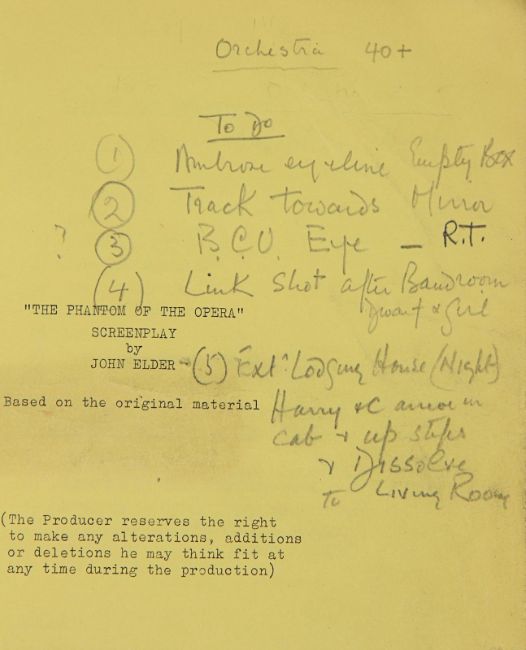 Orchestra 40+
To Do
(1) Ambrose eyeline Empty Box
(2) Track towards Mirror
? (3) B.C.U. Eye — R.T.
(4) Link Shot after Bandroom
Dwarf & Girl
"THE PHANTOM OF THE OPERA"
SCREENPLAY
by
JOHN ELDER
(5) Ext: Lodging House (Night)
Based on the original material
Harry & C arrive in
cab & up steps
& Dissolve
To Living Room
(The Producer reserves the right
to make any alterations, additions
or deletions he may think fit at
any time during the production)